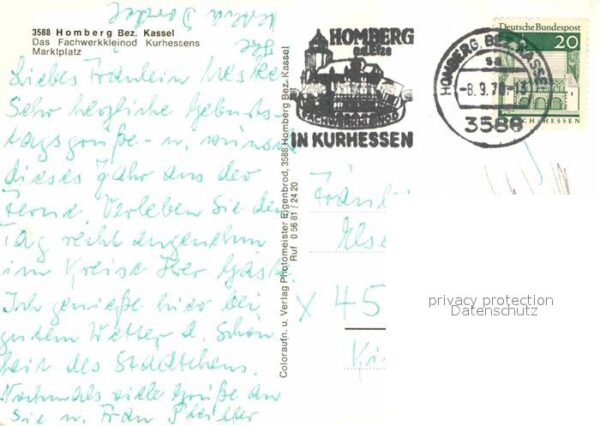 3588 Homberg Bez. Kassel
Das Fachwerkkleinod Kurhessens
Marktplatz
Liebes Fräulein
Sehr herzliche Geburts-
tagsgrüße - u. wünsche
dieses Jahr aus der
Ferne. Verleben Sie den
Tag recht angenehm
im Kreise Ihrer Gäste.
Ich genieße hier bei
gutem Wetter d. Schön-
heit des Städtchens.
Nochmals viele Grüße an
Sie u. Frau
Coloraufn. u. Verlag Photomeister Eigenbrod, 3588 Homberg Bez. Kassel
Ruf 0 56 81 / 24 20
HOMBERG
FACHWERKKLEINOD
IN KURHESSEN
HOMBERG, BEZ. KASSEL
sa
-8.9.70-13
3588
Deutsche Bundespost
20
Fräulein
Else
X 45
privacy protection
Datenschutz